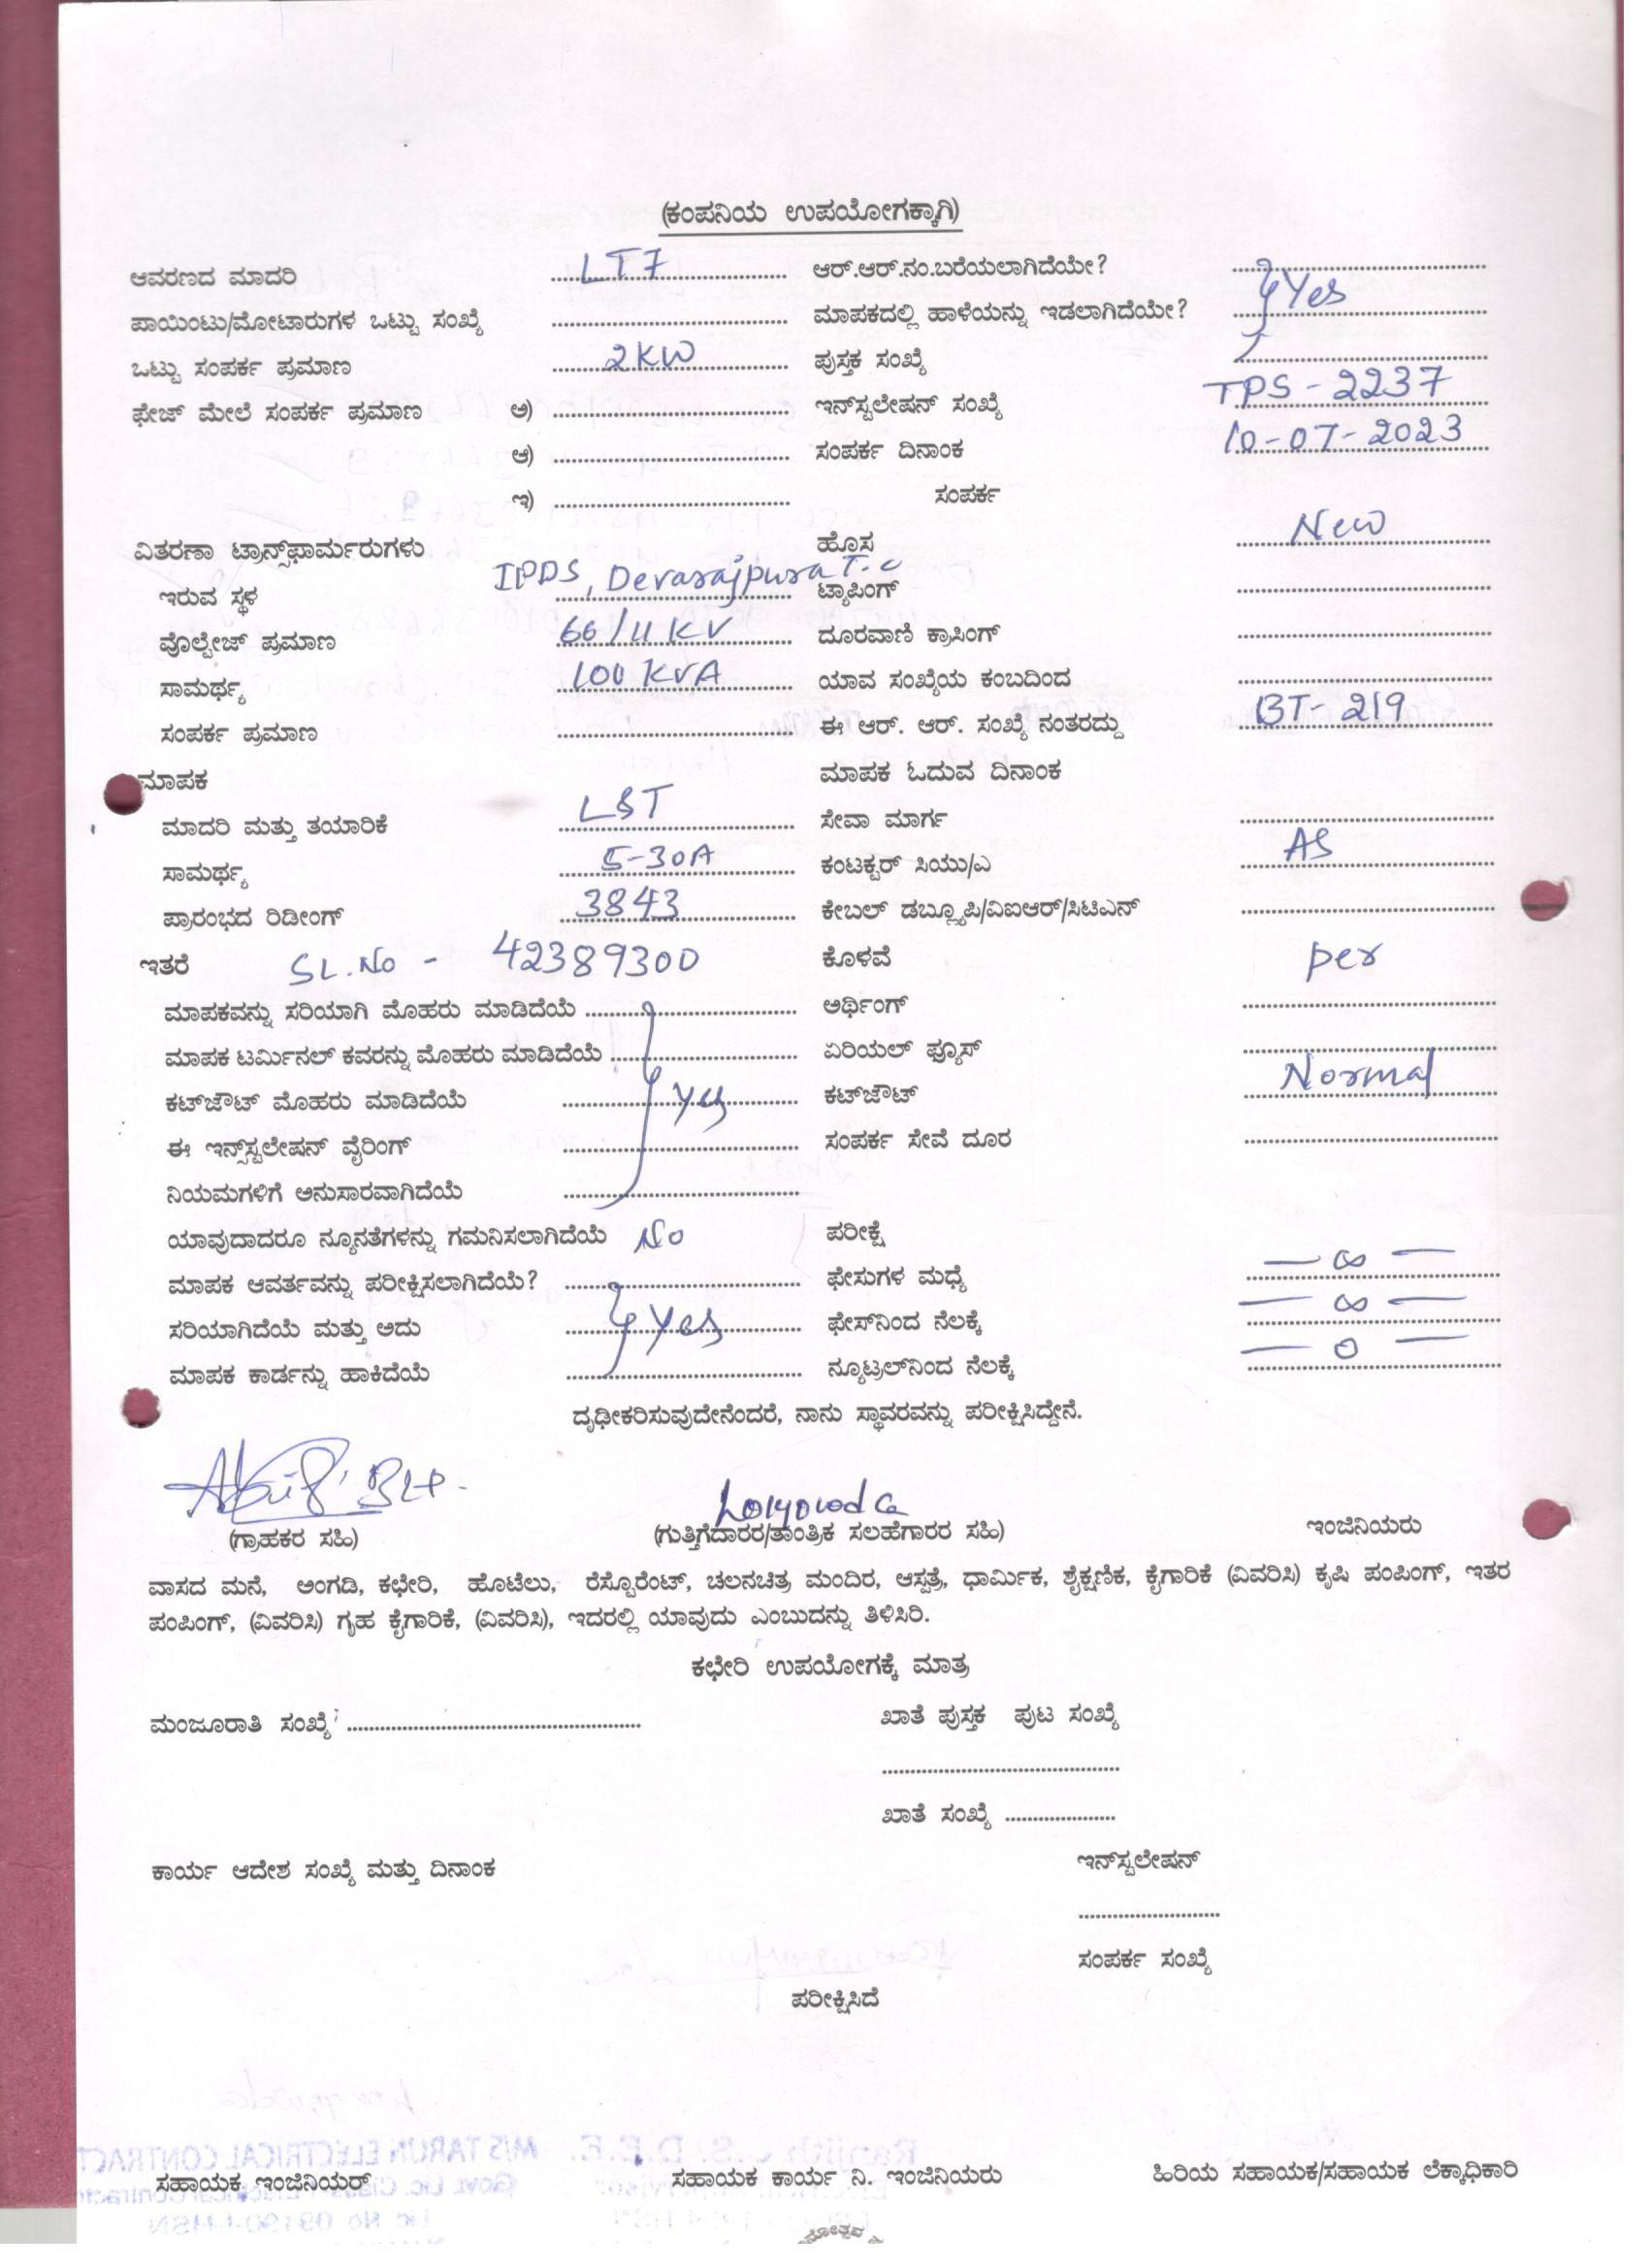 (ಕಂಪನಿಯ ಉಪಯೋಗಕ್ಕಾಗಿ)
ಆವರಣದ ಮಾದರಿ LT7 ಆರ್.ಆರ್.ನಂ.ಬರೆಯಲಾಗಿದೆಯೇ?
ಪಾಯಿಂಟು/ಮೋಟಾರುಗಳ ಒಟ್ಟು ಸಂಖ್ಯೆ ಮಾಪಕದಲ್ಲಿ ಹಾಳೆಯನ್ನು ಇಡಲಾಗಿದೆಯೇ? Yes
ಒಟ್ಟು ಸಂಪರ್ಕ ಪ್ರಮಾಣ 2KW ಪುಸ್ತಕ ಸಂಖ್ಯೆ
ಫೇಜ್ ಮೇಲೆ ಸಂಪರ್ಕ ಪ್ರಮಾಣ ಅ) ಇನ್‌ಸ್ಟಲೇಷನ್ ಸಂಖ್ಯೆ TPS-2237
ಆ) ಸಂಪರ್ಕ ದಿನಾಂಕ 10-07-2023
ಇ) ಸಂಪರ್ಕ
ವಿತರಣಾ ಟ್ರಾನ್ಸ್‌ಫಾರ್ಮರುಗಳು ಹೊಸ New
ಇರುವ ಸ್ಥಳ IPDS, Devarajpura T.C ಟ್ಯಾಪಿಂಗ್
ವೊಲ್ಟೇಜ್ ಪ್ರಮಾಣ 66/11 KV ದೂರವಾಣಿ ಕ್ರಾಸಿಂಗ್
ಸಾಮರ್ಥ್ಯ 100 KVA ಯಾವ ಸಂಖ್ಯೆಯ ಕಂಬದಿಂದ
ಸಂಪರ್ಕ ಪ್ರಮಾಣ ಈ ಆರ್. ಆರ್. ಸಂಖ್ಯೆ ನಂತರದ್ದು BT-219
ಮಾಪಕ ಮಾಪಕ ಓದುವ ದಿನಾಂಕ
ಮಾದರಿ ಮತ್ತು ತಯಾರಿಕೆ L&T ಸೇವಾ ಮಾರ್ಗ
ಸಾಮರ್ಥ್ಯ 5-30A ಕಂಟಕ್ಟರ್ ಸಿಯು/ಎ AS
ಪ್ರಾರಂಭದ ರಿಡೀಂಗ್ 3843 ಕೇಬಲ್ ಡಬ್ಲ್ಯೂಪಿ/ವಿಐಆರ್/ಸಿಟಿಎನ್
ಇತರೆ SL.No - 42389300 ಕೊಳವೆ per
ಮಾಪಕವನ್ನು ಸರಿಯಾಗಿ ಮೊಹರು ಮಾಡಿದೆಯೆ ಅರ್ಥಿಂಗ್
ಮಾಪಕ ಟರ್ಮಿನಲ್ ಕವರನ್ನು ಮೊಹರು ಮಾಡಿದೆಯೆ ಏರಿಯಲ್ ಫ್ಯೂಸ್
ಕಟ್‌ಜೌಟ್ ಮೊಹರು ಮಾಡಿದೆಯೆ Yes ಕಟ್‌ಜೌಟ್ Normal
ಈ ಇನ್ಸ್‌ಸ್ಟಲೇಷನ್ ವೈರಿಂಗ್ ಸಂಪರ್ಕ ಸೇವೆ ದೂರ
ನಿಯಮಗಳಿಗೆ ಅನುಸಾರವಾಗಿದೆಯೆ
ಯಾವುದಾದರೂ ನ್ಯೂನತೆಗಳನ್ನು ಗಮನಿಸಲಾಗಿದೆಯೆ No ಪರೀಕ್ಷೆ
ಮಾಪಕ ಆವರ್ತವನ್ನು ಪರೀಕ್ಷಿಸಲಾಗಿದೆಯೆ? ಫೇಸುಗಳ ಮಧ್ಯೆ — ∞ —
ಸರಿಯಾಗಿದೆಯೆ ಮತ್ತು ಅದು Yes ಫೇಸ್‌ನಿಂದ ನೆಲಕ್ಕೆ — ∞ —
ಮಾಪಕ ಕಾರ್ಡನ್ನು ಹಾಕಿದೆಯೆ ನ್ಯೂಟ್ರಲ್‌ನಿಂದ ನೆಲಕ್ಕೆ — 0 —
ದೃಢೀಕರಿಸುವುದೇನೆಂದರೆ, ನಾನು ಸ್ಥಾವರವನ್ನು ಪರೀಕ್ಷಿಸಿದ್ದೇನೆ.
(ಗ್ರಾಹಕರ ಸಹಿ) (ಗುತ್ತಿಗೆದಾರರ/ತಾಂತ್ರಿಕ ಸಲಹೆಗಾರರ ಸಹಿ) ಇಂಜಿನಿಯರು
ವಾಸದ ಮನೆ, ಅಂಗಡಿ, ಕಛೇರಿ, ಹೊಟೆಲು, ರೆಸ್ಟೊರೆಂಟ್, ಚಲನಚಿತ್ರ ಮಂದಿರ, ಆಸ್ಪತ್ರೆ, ಧಾರ್ಮಿಕ, ಶೈಕ್ಷಣಿಕ, ಕೈಗಾರಿಕೆ (ವಿವರಿಸಿ) ಕೃಷಿ ಪಂಪಿಂಗ್, ಇತರ
ಪಂಪಿಂಗ್, (ವಿವರಿಸಿ) ಗೃಹ ಕೈಗಾರಿಕೆ, (ವಿವರಿಸಿ), ಇದರಲ್ಲಿ ಯಾವುದು ಎಂಬುದನ್ನು ತಿಳಿಸಿರಿ.
ಕಛೇರಿ ಉಪಯೋಗಕ್ಕೆ ಮಾತ್ರ
ಮಂಜೂರಾತಿ ಸಂಖ್ಯೆ ಖಾತೆ ಪುಸ್ತಕ ಪುಟ ಸಂಖ್ಯೆ
ಖಾತೆ ಸಂಖ್ಯೆ
ಕಾರ್ಯ ಆದೇಶ ಸಂಖ್ಯೆ ಮತ್ತು ದಿನಾಂಕ ಇನ್‌ಸ್ಟಲೇಷನ್
ಸಂಪರ್ಕ ಸಂಖ್ಯೆ
ಪರೀಕ್ಷಿಸಿದೆ
ಸಹಾಯಕ ಇಂಜಿನಿಯರ್ ಸಹಾಯಕ ಕಾರ್ಯ ನಿ. ಇಂಜಿನಿಯರು ಹಿರಿಯ ಸಹಾಯಕ/ಸಹಾಯಕ ಲೆಕ್ಕಾಧಿಕಾರಿ